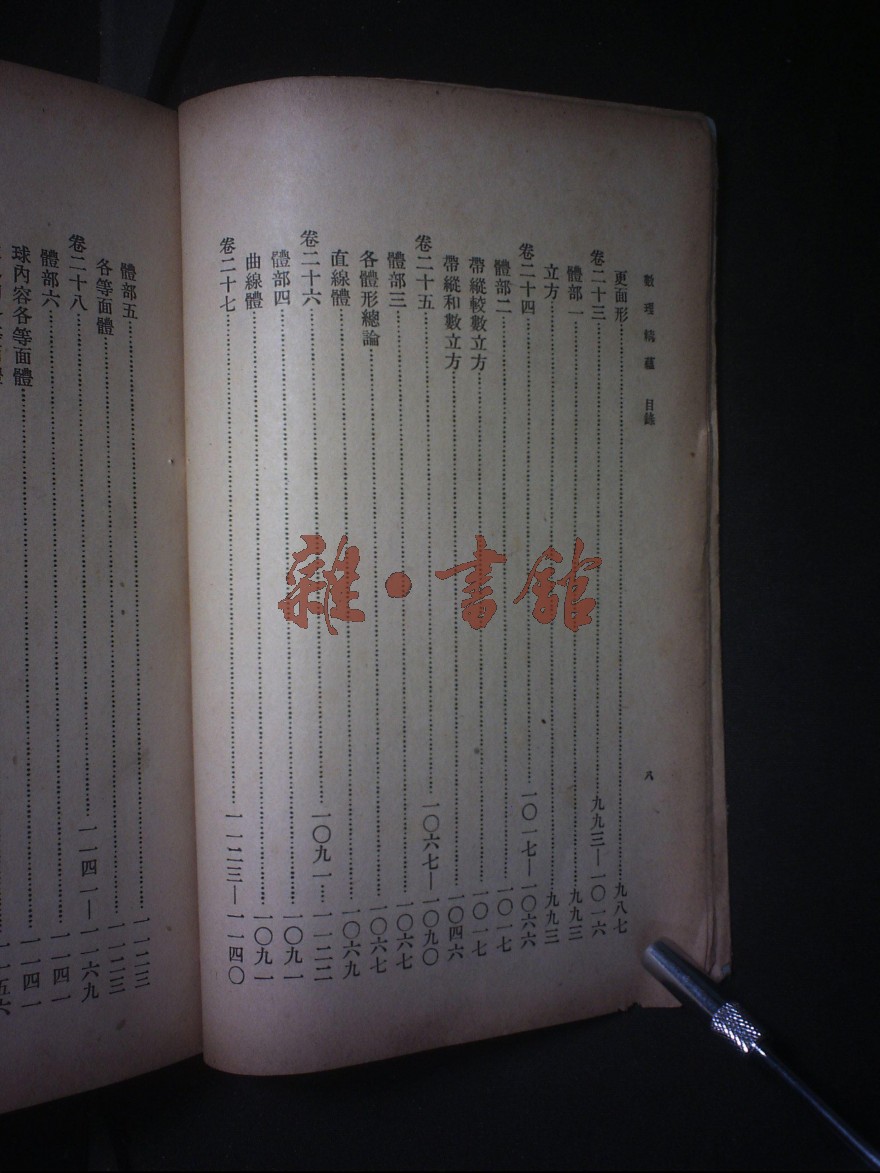 數理精蘊 目錄 八
更面形 九八七
卷二十三 九九三—一〇一六
體部一 九九三
立方 九九三
卷二十四 一〇一七—一〇六六
體部二 一〇一七
帶縱較數立方 一〇一七
帶縱和數立方 一〇四六
卷二十五 一〇六七—一〇九〇
體部三 一〇六七
各體形總論 一〇六七
直線體 一〇六九
卷二十六 一〇九一—一一二二
體部四 一〇九一
曲線體 一〇九一
卷二十七 一一二三—一一四〇
體部五 一一二三
各等面體 一一二三
卷二十八 一一四一—一一六九
體部六 一一四一
球內容各等面體 一一四一
雜·書館